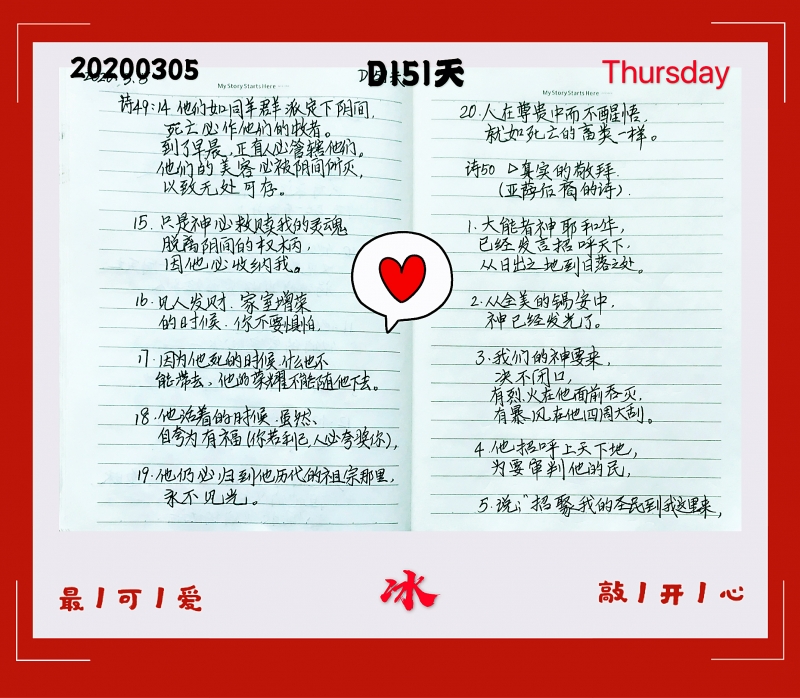 20200305
D151天
Thursday
2020.3.5
D151天
My Story Starts Here ······
诗49:14 他们如同羊群派定下阴间,
死亡必作他们的牧者。
到了早晨,正直人必管辖他们。
他们的美容必被阴间所灭,
以致无处可存。
15. 只是神必救赎我的灵魂
脱离阴间的权柄,
因他必收纳我。
16. 见人发财.家室增荣
的时候.你不要惧怕,
17. 因为他死的时候.什么也不
能带去,他的荣耀不能随他下去。
18. 他活着的时候.虽然、
自夸为有福(你若利己,人必夸奖你),
19. 他仍必归到他历代的祖宗那里,
永不见光。
My Story Starts Here ······
20. 人在尊贵中而不醒悟,
就如死亡的畜类一样。
诗50 ▷真实的敬拜.
(亚萨后裔的诗).
1. 大能者神耶和华,
已经发言招呼天下,
从日出之地到日落之处。
2. 从全美的锡安中,
神已经发光了。
3. 我们的神要来,
决不闭口,
有烈火在他面前吞灭,
有暴风在他四周大刮。
4. 他招呼上天下地,
为要审判他的民,
5. 说:“招聚我的圣民到我这里来,
最丨可丨爱
冰
敲丨开丨心